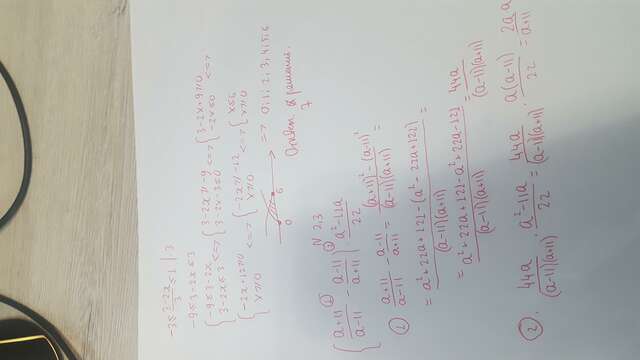 -3 ≤ (3-2x)/3 ≤ 1 | 3
-9 ≤ 3-2x ≤ 3
{ -9 ≤ 3-2x; 3-2x ≤ 3 <=> { 3-2x ≥ -9; 3-2x-3 ≤ 0 <=> { 3-2x+9 ≥ 0; -2x ≤ 0 <=>
{ -2x+12 ≥ 0; x ≥ 0 <=> { -2x ≥ -12; x ≥ 0 <=> { x ≤ 6; x ≥ 0
0 6 => 0, 1, 2, 3, 4, 5, 6
7
N 2.3
( (a+11)/(a-11) - (a-11)/(a+11) ) · (a²-11a)/22
1) (a+11)/(a-11) - (a-11)/(a+11) = ((a+11)² - (a-11)²)/((a-11)(a+11)) =
= (a²+22a+121-(a²-22a+121))/((a-11)(a+11)) =
= (a²+22a+121-a²+22a-121)/((a-11)(a+11)) = 44a/((a-11)(a+11))
2) 44a/((a-11)(a+11)) · (a²-11a)/22 = 44a/((a-11)(a+11)) · a(a-11)/22 = 2a·a/(a+11)